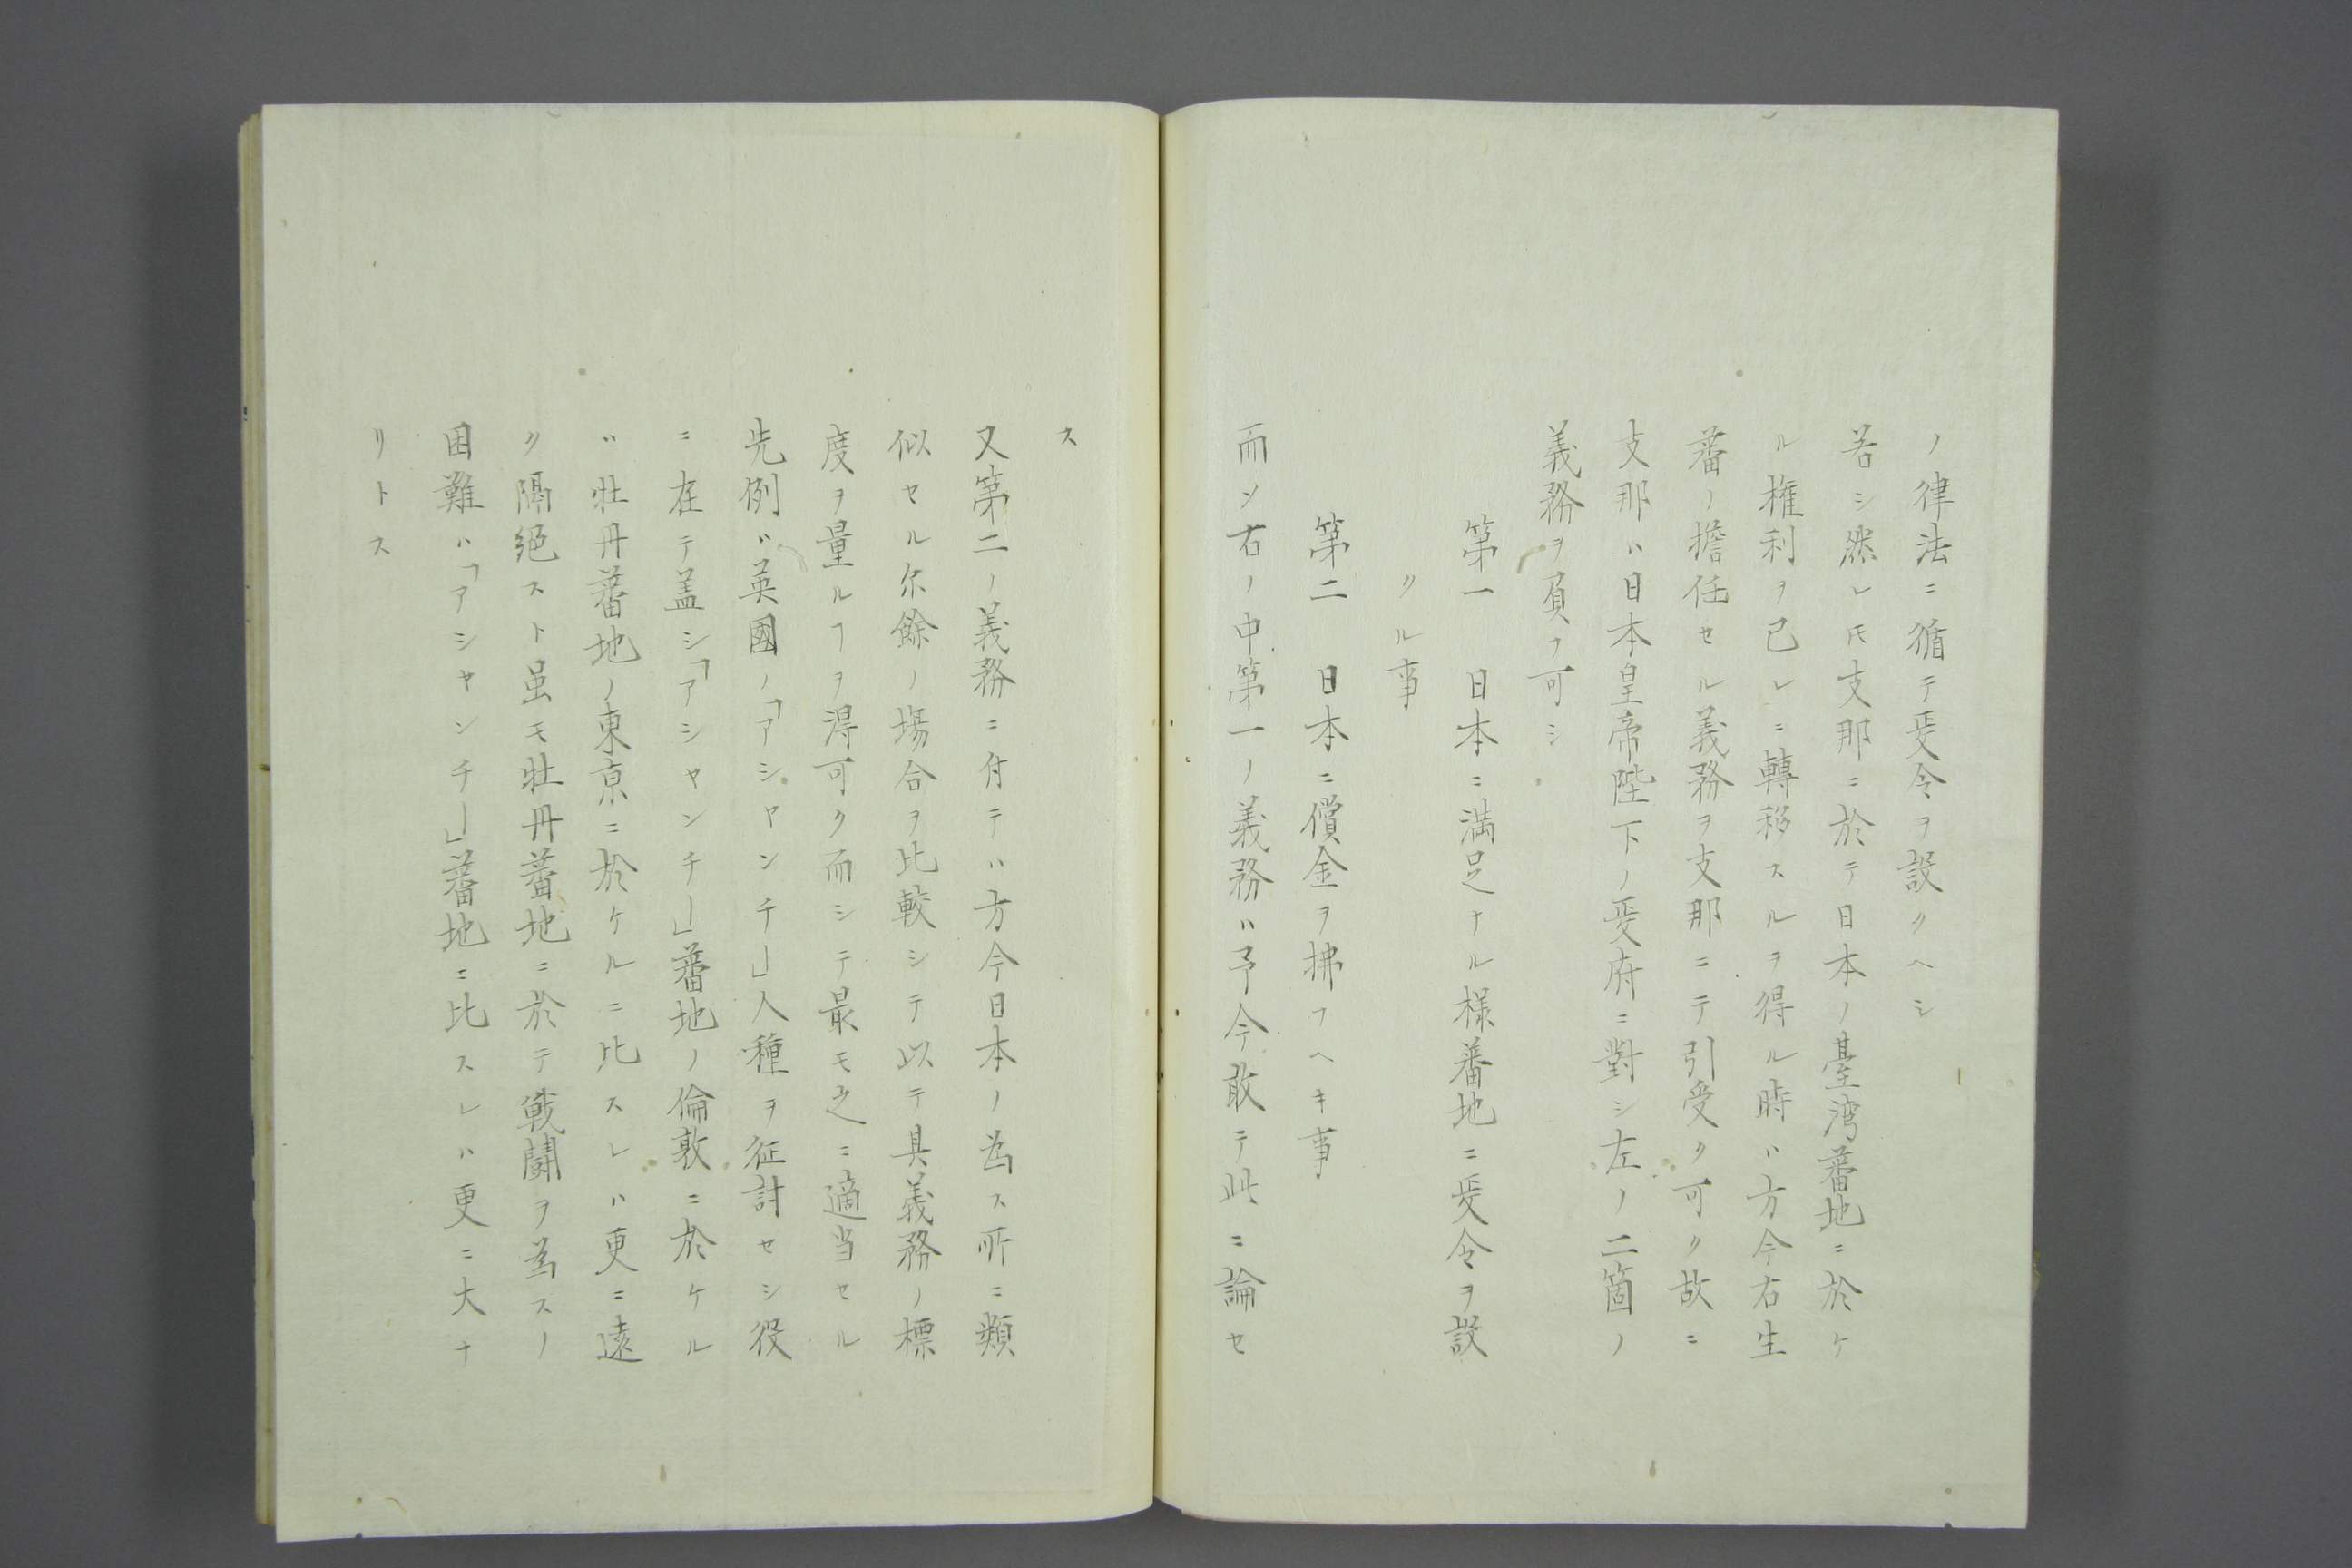 ノ律法ニ循テ政令ヲ設クヘシ
若シ然レ𪜈支那ニ於テ日本ノ臺湾蕃地ニ於ケ
ル權利ヲ己レニ轉移スルヲ得ル時ハ方今右生
蕃ノ擔任セル義務ヲ支那ニテ引受ク可ク故ニ
支那ハ日本皇帝陛下ノ政府ニ對シ左ノ二箇ノ
義務ヲ負フ可シ
第一　日本ニ満足ナル様蕃地ニ政令ヲ設
クル事
第二　日本ニ償金ヲ拂フヘキ事
而ソ右ノ中第一ノ義務ハ予今敢テ此ニ論セ
ス
又第二ノ義務ニ付テハ方今日本ノ為ス所ニ類
似セル尓餘ノ塲合ヲ比較シテ以テ具義務ノ標
度ヲ量ルヿヲ淂可ク而シテ最モ之ニ適当セル
先例ハ英國ノ「アシャンチー」人種ヲ征討セシ役
ニ在テ盖シ「アシャンチー」蕃地ノ倫敦ニ於ケル
ハ牡丹蕃地ノ東京ニ於ケルニ比スレハ更ニ遠
ク隔絶スト虽モ牡丹蕃地ニ於テ戦鬪ヲ為スノ
困難ハ「アシャンチー」蕃地ニ比スレハ更ニ大ナ
リトス